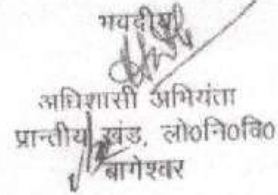 भवदीय
अधिशासी अभियंता
प्रान्तीय खंड, लो०नि०वि०
बागेश्वर